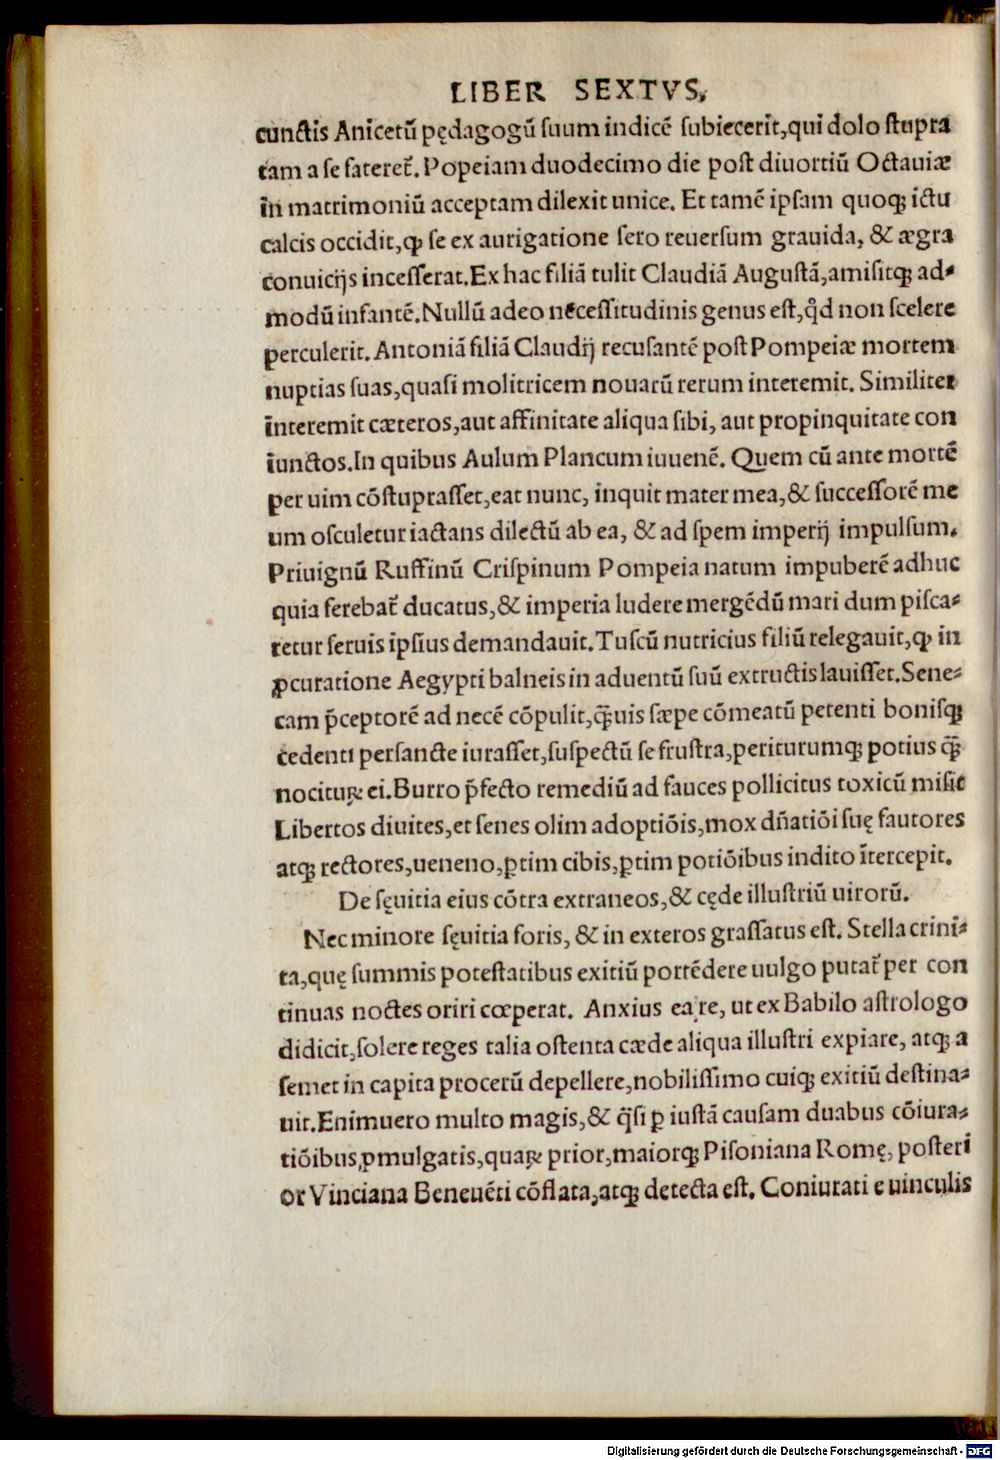 LIBER SEXTVS.
cunctis Anicetũ pędagogũ suum indicẽ subiecerit,qui dolo stupra
tam a se fateret᷑. Popeiam duodecimo die post diuortiũ Octauiæ
in matrimoniũ acceptam dilexit unice. Et tamẽ ipsam quoqꝫ ictu
calcis occidit,ꝙ se ex aurigatione sero reuersum grauida, & ægra
conuicijs incesserat.Ex hac filiã tulit Claudiã Augustã,amisitqꝫ ad⸗
modũ infantẽ.Nullũ adeo necessitudinis genus est,qd̃ non scelere
perculerit. Antoniã filiã Claudij recusantẽ post Pompeiæ mortem
nuptias suas,quasi molitricem nouarũ rerum interemit. Similiter
interemit cæteros,aut affinitate aliqua sibi, aut propinquitate con
iunctos.In quibus Aulum Plancum iuuenẽ. Quem cũ ante mortẽ
per uim cõstuprasset,eat nunc, inquit mater mea,& successorẽ me
um osculetur iactans dilectũ ab ea, & ad spem imperij impulsum.
Priuignũ Ruffinũ Crispinum Pompeia natum impuberẽ adhuc
quia ferebat᷑ ducatus,& imperia ludere mergẽdũ mari dum pisca⸗
retur seruis ipsius demandauit.Tuscũ nutricius filiũ relegauit,ꝙ in
ꝓcuratione Aegypti balneis in aduentũ suũ extructis lauisset.Sene⸗
cam p̃ceptorẽ ad necẽ cõpulit,q̃uis sæpe cõmeatũ petenti bonisqꝫ
cedenti persancte iurasset,suspectũ se frustra,periturumqꝫ potius q̃
nociturꝝ ei.Burro p̃fecto remediũ ad fauces pollicitus toxicũ misit
Libertos diuites,et senes olim adoptiõis,mox dñatiõi suę fautores
atqꝫ rectores,ueneno,ꝑtim cibis,ꝑtim potiõibus indito ĩtercepit.
De sęuitia eius cõtra extraneos,& cęde illustriũ uirorũ.
Nec minore sęuitia foris, & in exteros grassatus est. Stella crini⸗
ta,quę summis potestatibus exitiũ portẽdere uulgo putat᷑ per con
tinuas noctes oriri cœperat. Anxius ea re, ut ex Babilo astrologo
didicit,solere reges talia ostenta cæde aliqua illustri expiare, atqꝫ a
semet in capita procerũ depellere,nobilissimo cuiqꝫ exitiũ destina⸗
uit.Enimuero multo magis,& q̃si ꝑ iustã causam duabus cõiura⸗
tiõibus ꝓmulgatis,quaꝝ prior,maiorqꝫ Pisoniana Romę, posteri
or Vinciana Beneuẽti cõflata,atqꝫ detecta est. Coniurati e uinculis
Digitalisierung gefördert durch die Deutsche Forschungsgemeinschaft - DFG